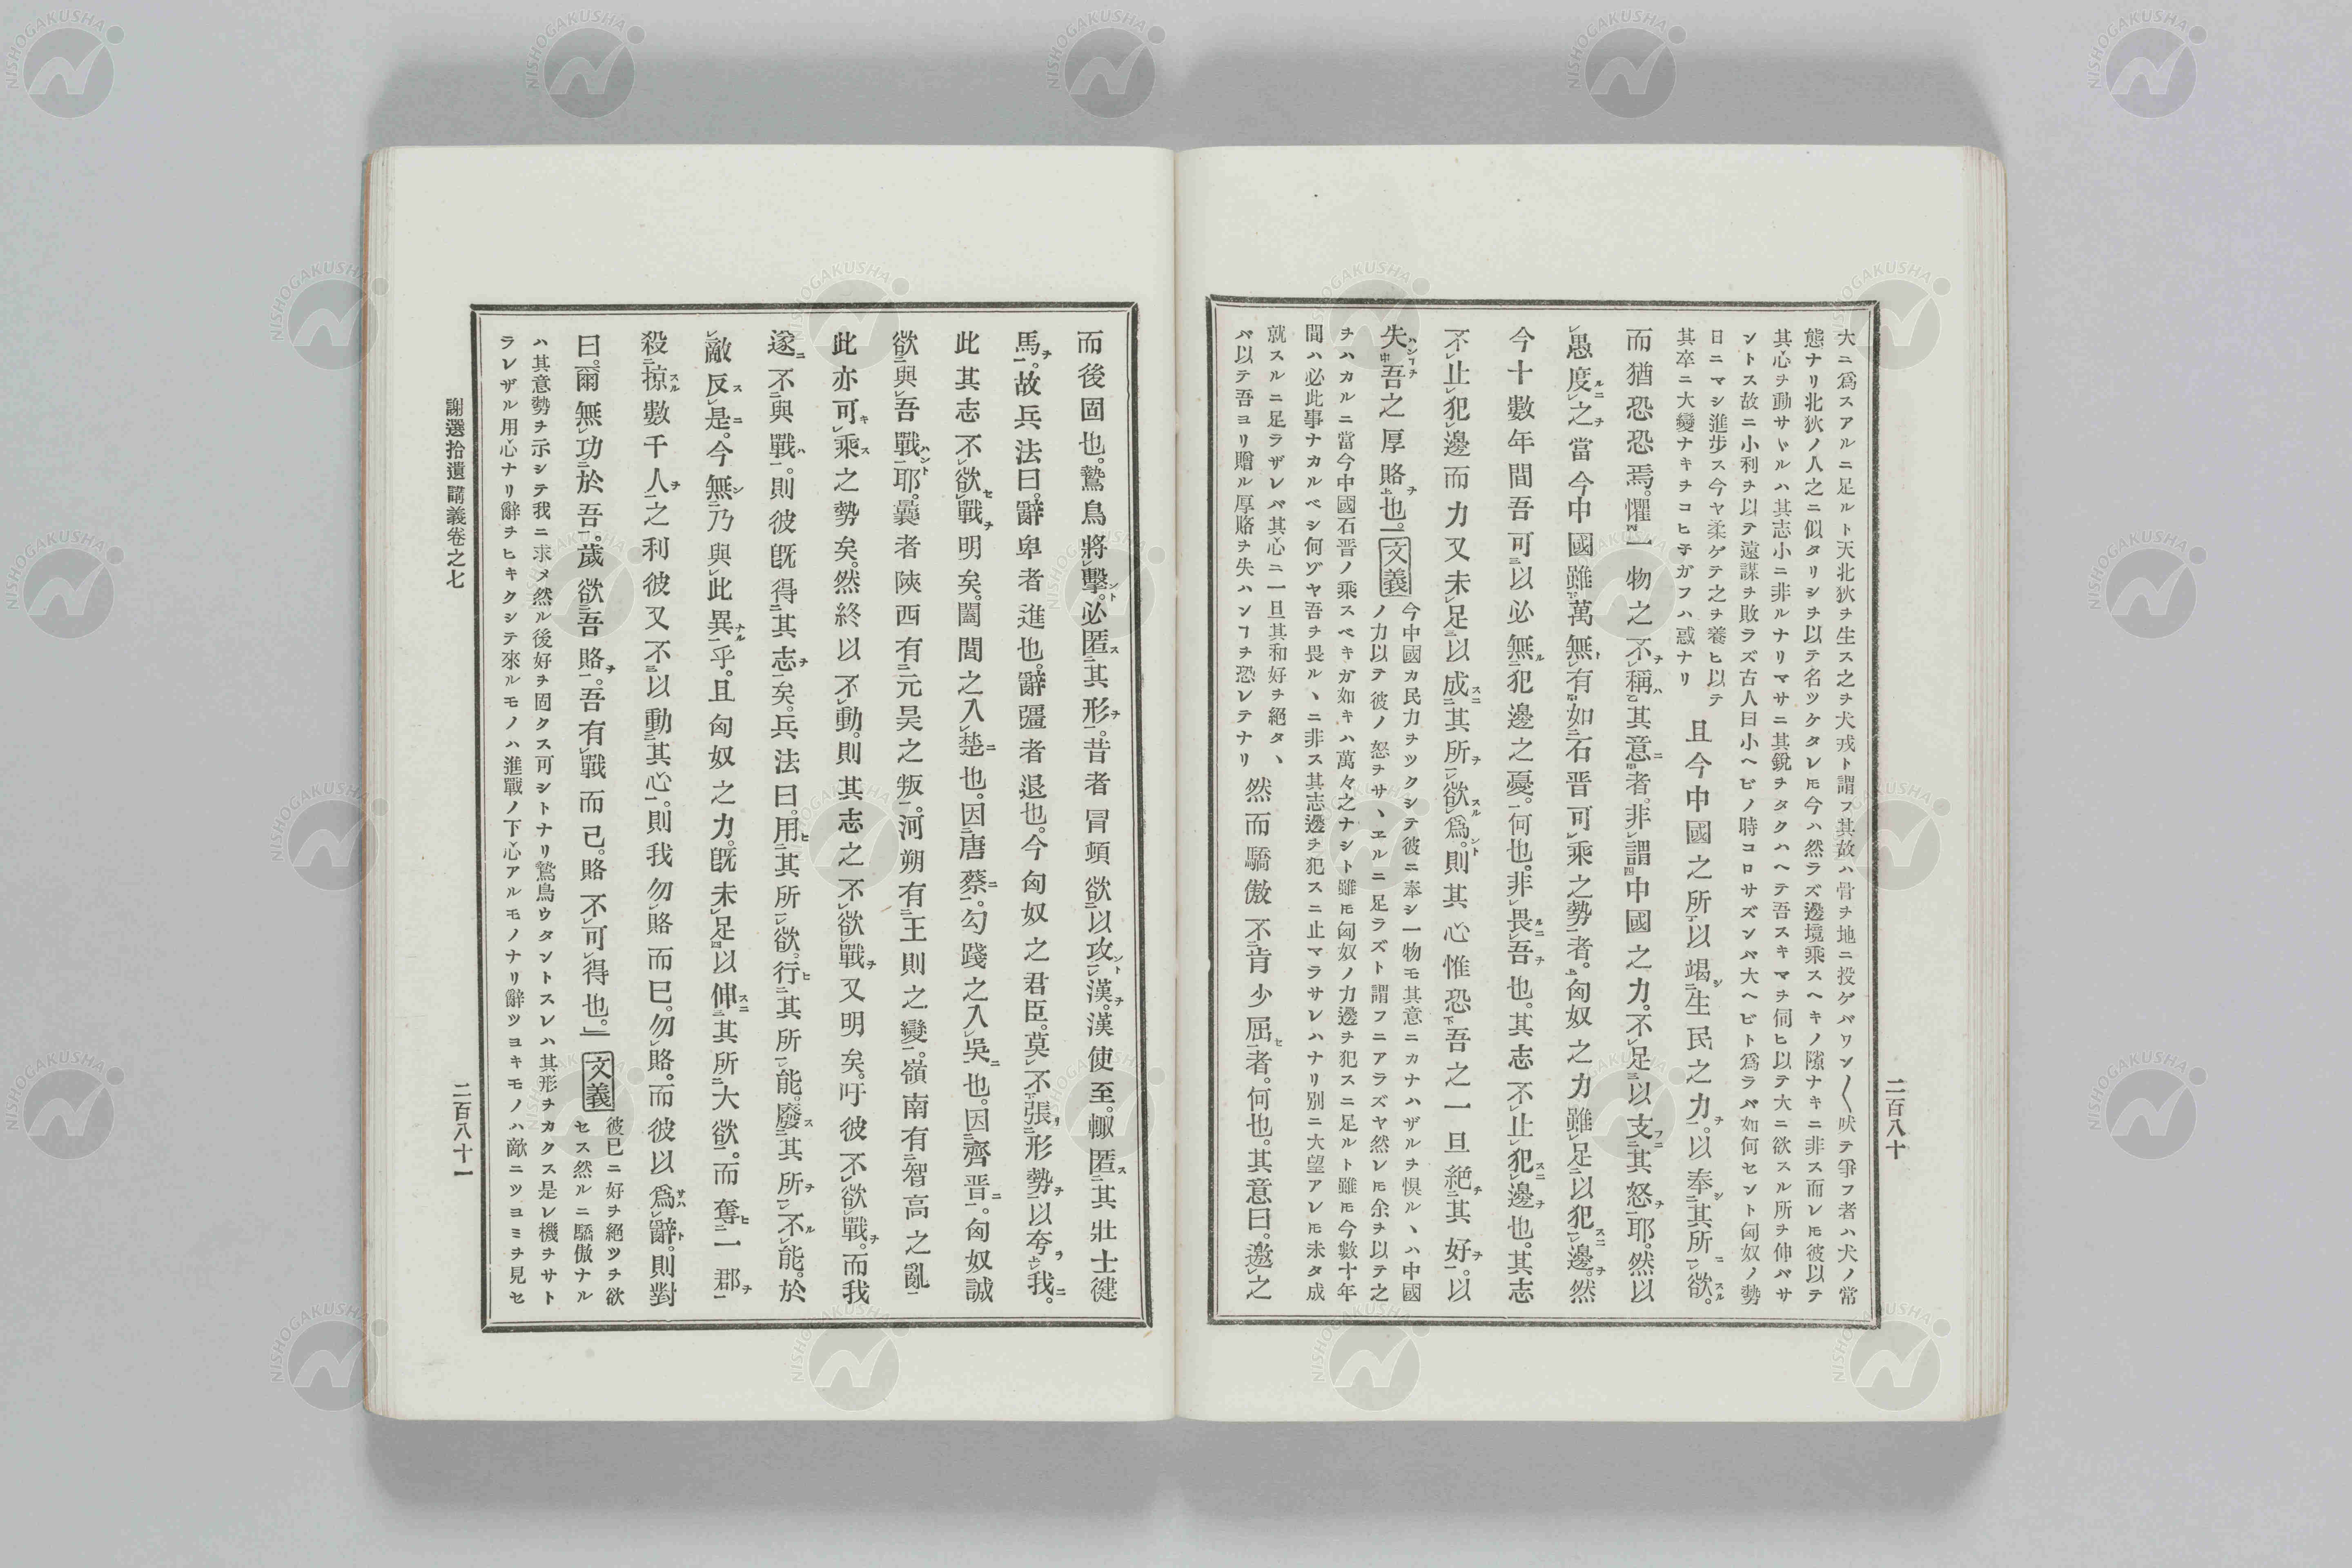 二百八十
大ニ爲スアルニ足ルト天北狄ヲ生ス之ヲ犬戎ト謂フ其故ハ骨ヲ地ニ投ゲバワン〱吠テ爭フ者ハ犬ノ常
態ナリ北狄ノ人之ニ似タリシヲ以テ名ツケタレ𪜈今ハ然ラズ邊境乘スヘキノ隙ナキニ非ス而レ𪜈彼以テ
其心ヲ動サヾルハ其志小ニ非ルナリマサニ其銳ヲタクハヘテ吾スキマヲ伺ヒ以テ大ニ欲スル所ヲ伸バサ
ントス故ニ小利ヲ以テ遠謀ヲ敗ラズ古人曰小ヘビノ時コロサズンバ大ヘビト爲ラバ如何セント匈奴ノ勢
日ニマシ進步ス今ヤ柔ゲテ之ヲ養ヒ以テ
其卒ニ大變ナキヲコヒ子ガフハ惑ナリ
且今中國之所以竭生民之力。以奉其所欲。
而猶恐恐焉。懼一物之不稱其意者。非謂中國之力。不足以支其怒耶。然以
愚度之當今中國雖萬無有如石晋可乘之勢者。匈奴之力雖足以犯邊。然
今十數年間吾可以必無犯邊之憂。何也。非畏吾也。其志不止犯邊也。其志
不止犯邊而力又未足以成其所欲爲。則其心惟恐吾之一旦絕其好。以
失吾之厚賂也。
文義
今中國カ民力ヲツクシテ彼ニ奉シ一物モ其意ニカナハザルヲ惧ルヽハ中國
ノ力以テ彼ノ怒ヲサヽエルニ足ラズト謂フニアラズヤ然レ𪜈余ヲ以テ之
ヲハカルニ當今中國石晋ノ乘スベキガ如キハ萬々之ナシト雖𪜈匈奴ノ力邊ヲ犯スニ足ルト雖𪜈今數十年
間ハ必此事ナカルベシ何ヅヤ吾ヲ畏ルヽニ非ス其志邊ヲ犯スニ止マラサレハナリ別ニ大望アレ𪜈未タ成
就スルニ足ラザレバ其心ニ一旦其和好ヲ絕タヽ
バ以テ吾ヨリ贈ル厚賂ヲ失ハンヿヲ恐レテナリ
然而驕傲不肯少屈者。何也。其意曰。邀之
而後固也。鷙鳥將擊。必匿其形。昔者冒頓欲以攻漢。漢使至。輙匿其壯士徤
馬。故兵法曰。辭卑者進也。辭彊者退也。今匈奴之君臣。莫不張形勢以夸我。
此其志不欲戰明矣。闔閭之入楚也。因唐蔡。勾踐之入吳也。因齊晋。匈奴誠
欲與吾戰耶。曩者陝西有元昊之叛。河朔有王則之變。嶺南有智高之亂
此亦可乘之勢矣。然終以不動。則其志之不欲戰又明矣。吁彼不欲戰。而我
遂不與戰。則彼旣得其志矣。兵法曰。用其所欲。行其所能。廢其所不能。於
敵反是。今無乃與此異乎。且匈奴之力。旣未足以伸其所大欲。而奪一郡
殺掠數千人之利彼又不以動其心。則我勿賂而已。勿賂。而彼以爲辭。則對
曰。爾無功於吾。歲欲吾賂。吾有戰而已。賂不可得也。」
文義
彼已ニ好ヲ絕ツヲ欲
セス然ルニ驕傲ナル
ハ其意勢ヲ示シテ我ニ求メ然ル後好ヲ固クス可シトナリ鷙鳥ウタントスレハ其形ヲカクス是レ機ヲサト
ラレザル用心ナリ辭ヲヒキクシテ來ルモノハ進戰ノ下心アルモノナリ辭ツヨキモノハ敵ニツヨミヲ見セ
謝選拾遺講義卷之七
二百八十一